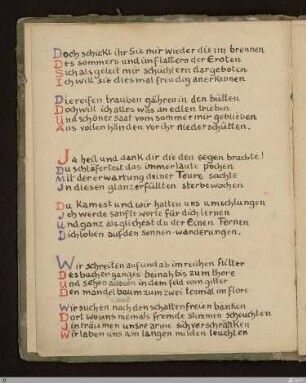 Doch schickt ihr Sie mir wieder die im brennen
Des sommers und im flattern der Eroten
Sich als geleit mir schüchtern dargeboten
Ich will sie diesmal freudig anerkennen

Die reifen trauben gähren in den bütten
Doch will ich alles was an edlen trieben
Und schöner saat vom sommer mir geblieben
Aus vollen händen vor ihr niederschütten.

Ja heil und dank dir die den segen brachte!
Du schläfertest das immerlaute pochen
Mit der erwartung deiner Teure sachte
In diesen glanzerfüllten sterbewochen

Du kamest und wir halten uns umschlungen
Ich werde sanfte worte für dich lernen
Und ganz als glichest du der Einen Fernen
Dich loben auf den sonnen-wanderungen.

Wir schreiten auf und ab im reichen flitter
Des buchenganges beinah bis zum thore
Und sehen aussen in dem feld vom gitter
Den mandelbaum zum zweitenmal im flore

Wir suchen nach den schattenfreien bänken
Dort wo uns niemals fremde stimmen scheuchten
In träumen unsre arme sich verschränken
Wir laben uns am langen milden leuchten